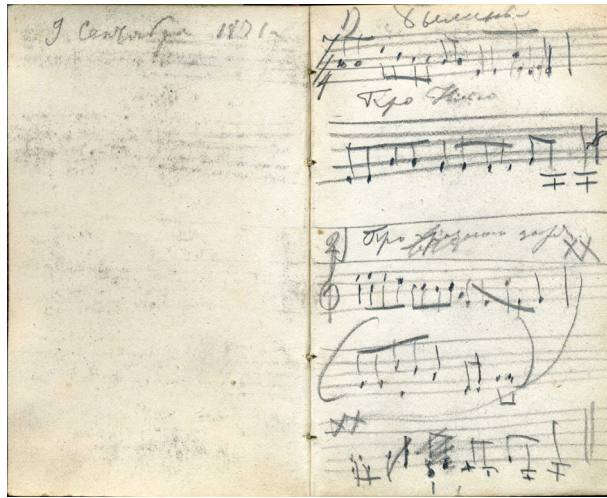 9 Сентября 1871 г.
1) Былины
7/4
Про
2) Про Грозного царя